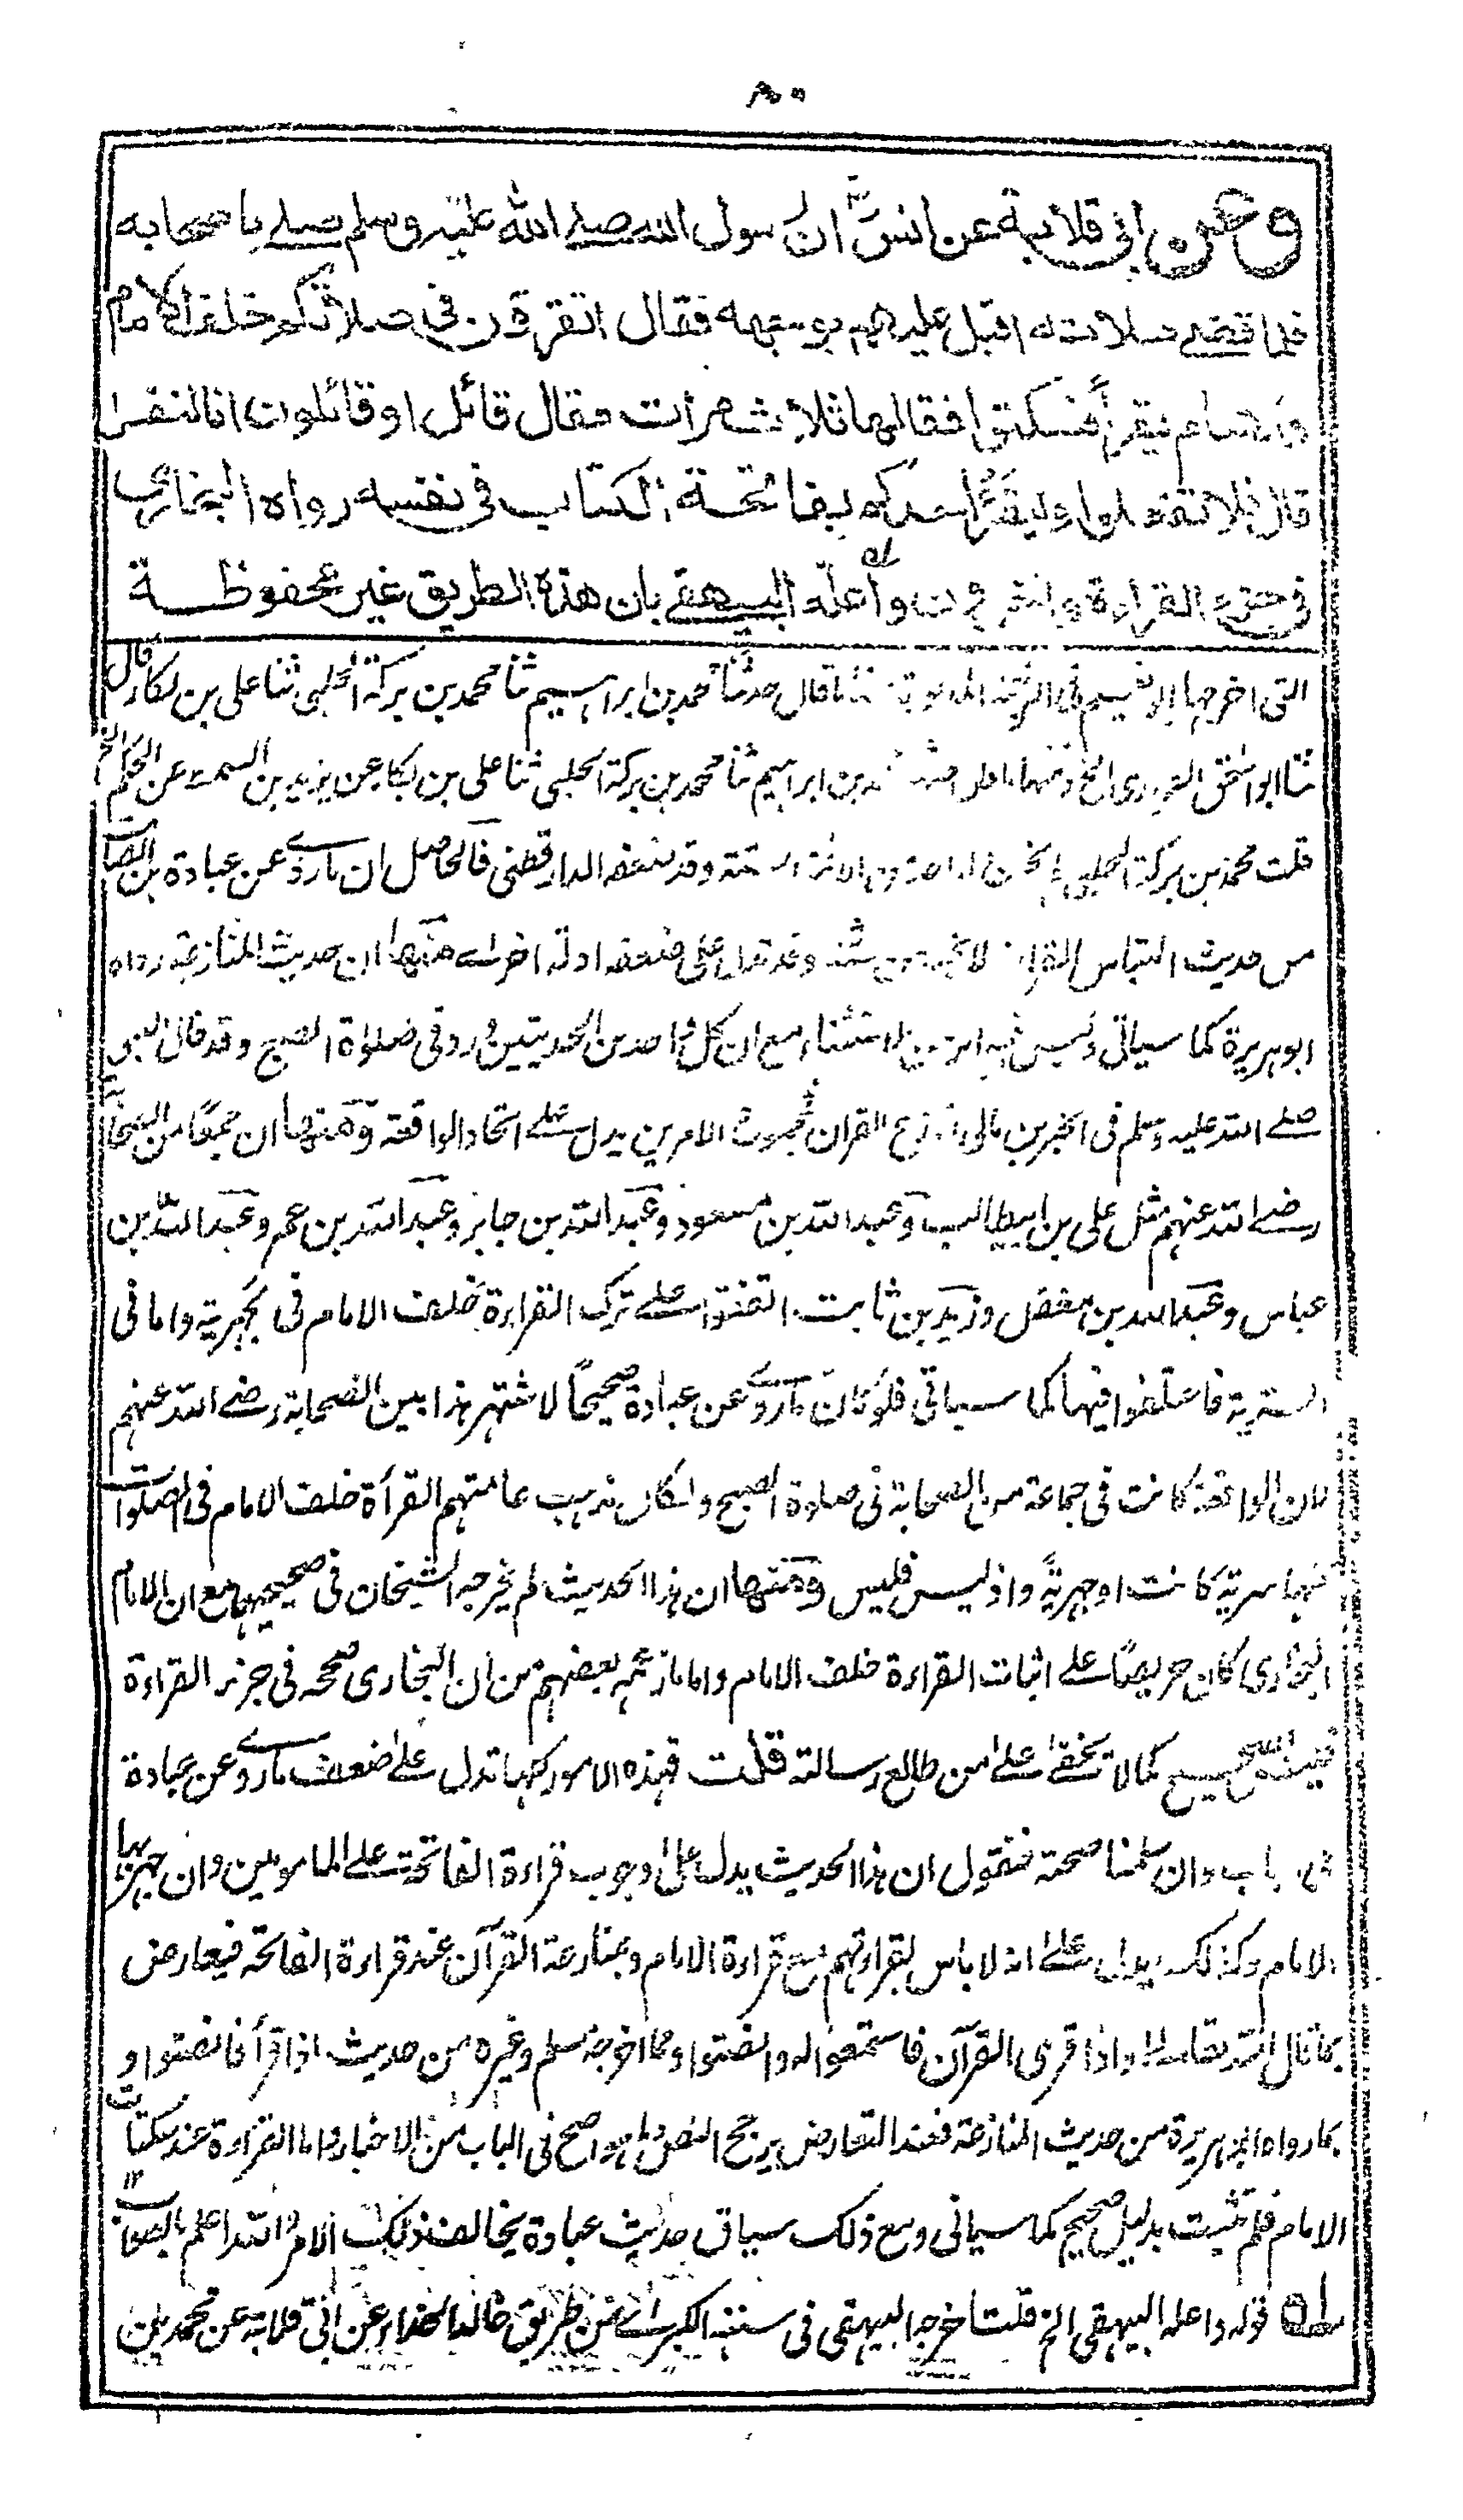 ٨٠
وعن ابی قلابة عن انس ان رسول الله صلے الله علیه وسلم صلے باصحابه
فلما قضے صلاته اقبل علیهم بوجهه فقال اتقرؤن فی صلاتکم خلف الامام
والامام یقرأ فسکتوا فقالها ثلاث مرات فقال قائل او قائلون انا لنفعل
قال فلا تفعلوا ولیقرأ احدکم بفاتحة الکتاب فی نفسه رواه البخاری
فی جزء القراءة واخرون واعلّه البیهقے بان هذه الطریق غیر محفوظة
التی اخرجها الدارقطنی قال حدثنا محمد بن ابراهیم ثنا محمد بن برکة الحلبی ثنا علی بن بکار قال
ثنا ابو اسحٰق الخ ومنها بن ابراهیم ثنا محمد بن برکة الحلبی ثنا علی بن بکار عن یزید بن السمط عن الحکم الخ
قلت محمد بن برکة الحلبی وقد ضعفه الدارقطنی فالحاصل ان ما روے عن عبادة بن الصامت
من حدیث التباس القراءة لا یخلو من شئ وقد تدل علی ضعفه ادلة اخرے منها ان حدیث المنازعة رواه
ابو هریرة کما سیاتی ولیس فیه الاستثناء مع ان کل واحد من الحدیثین ورد فی صلوة الصبح وقد قال النبی
صلے الله علیه وسلم فی الخبرین مالی انازع القرآن الامرین یدل علے اتحاد الواقعة ومنها ان جمعًا من الصحابة
رضے الله عنهم مثل علی بن ابیطالب وعبد الله بن مسعود وعبد الله بن جابر وعبد الله بن عمر وعبد الله بن
عباس وعبد الله بن مغفل وزید بن ثابت اتفقوا علے ترک القراءة خلف الامام فی الجهریة واما فی
السریة فاختلفوا فیها کما سیاتی فلو کان ما روے عن عبادة صحیحًا لاشتهر هذا بین الصحابة رضے الله عنهم
لان الواقعة کانت فی جماعة من الصحابة فی صلوة الصبح ولکان مذهب عامتهم القرأة خلف الامام فی الصلوات
کلها سریة کانت او جهریةً واذ لیس فلیس ومنها ان هذا الحدیث لم یخرجه الشیخان فی صحیحیهما مع ان الامام
البخاری کان حریصًا علے اثبات القراءة خلف الامام واما ما زعمه بعضهم من ان البخاری صححه فی جزء القراءة
فلیس بصحیح کما لا یخفے علے من طالع رسالته قلت فهذه الامور کلها تدل علے ضعف ما روے عن عبادة
فی الباب وان سلمنا صحته فنقول ان هذا الحدیث یدل علی وجوب قراءة الفاتحة علے المامومین وان جهر بها
الامام وکذلک یدل علے انه لا باس بقراءتهم مع قراءة الامام وبمنازعة القرآن عند قراءة الفاتحة فیعارض
بما قال الله تعالے واذا قرئ القرآن فاستمعوا له وانصتوا وبما اخرجه مسلم وغیره من حدیث اذا قرأ فانصتوا و
بما رواه ابو هریرة من حدیث المنازعة فعند التعارض یرجح النص وما هو اصح فی الباب من الاخبار واما القراءة عند سکتات
الامام فلم تثبت بدلیل صحیح کما سیاتی ومع ذلک سیاق حدیث عبادة یخالف ذلک الامر والله اعلم بالصواب ١٢
قوله واعله البیهقی الخ قلت اخرجه البیهقی فی سننه الکبرے من طریق خالد الحذاء عن ابی قلابة عن محمد بن